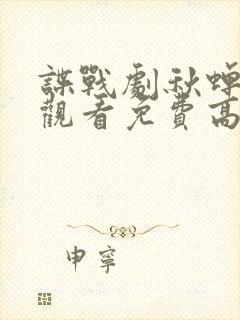 諜戰劇秋蟬
觀看免費高
申寧